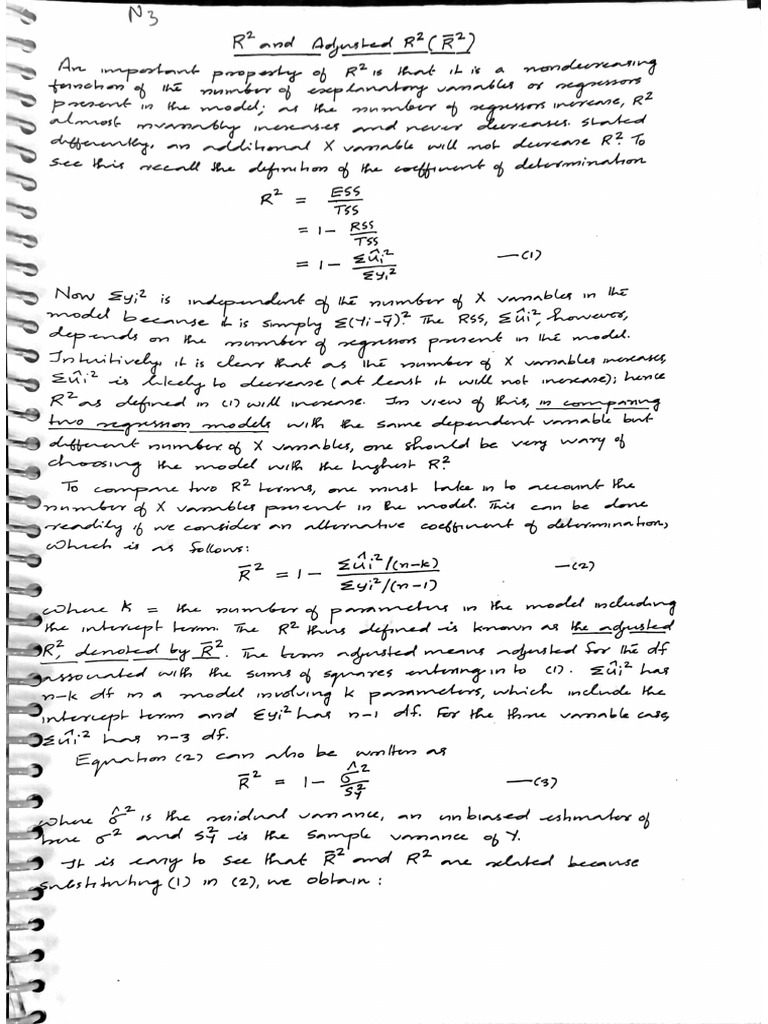 N3
R² and Adjusted R² (R̄²)
An important property of R² is that it is a nondecreasing
function of the number of explanatory variables or regressors
present in the model; as the number of regressors increase, R²
almost invariably increases and never decreases. Stated
differently, an additional X variable will not decrease R². To
see this recall the definition of the coefficient of determination
R² = ESS/TSS
= 1 - RSS/TSS
= 1 - Σûi²/Σyi² —(1)
Now Σyi² is independent of the number of X variables in the
model because it is simply Σ(Yi-Ȳ)². The RSS, Σûi², however,
depends on the number of regressors present in the model.
Intuitively, it is clear that as the number of X variables increases,
Σûi² is likely to decrease (at least it will not increase); hence
R² as defined in (1) will increase. In view of this, in comparing
two regression models with the same dependent variable but
different number of X variables, one should be very wary of
choosing the model with the highest R².
To compare two R² terms, one must take in to account the
number of X variables present in the model. This can be done
readily if we consider an alternative coefficient of determination,
which is as follows:
R̄² = 1 - Σûi²/(n-k) / Σyi²/(n-1) —(2)
where k = the number of parameters in the model including
the intercept term. The R² thus defined is known as the adjusted
R², denoted by R̄². The term adjusted means adjusted for the df
associated with the sums of squares entering in to (1). Σûi² has
n-k df in a model involving k parameters, which include the
intercept term and Σyi² has n-1 df. For the three variable case,
Σûi² has n-3 df.
Equation (2) can also be written as
R̄² = 1 - σ̂²/S²Y —(3)
where σ̂² is the residual variance, an unbiased estimator of
true σ² and S²Y is the sample variance of Y.
It is easy to see that R̄² and R² are related because
substituting (1) in (2), we obtain :